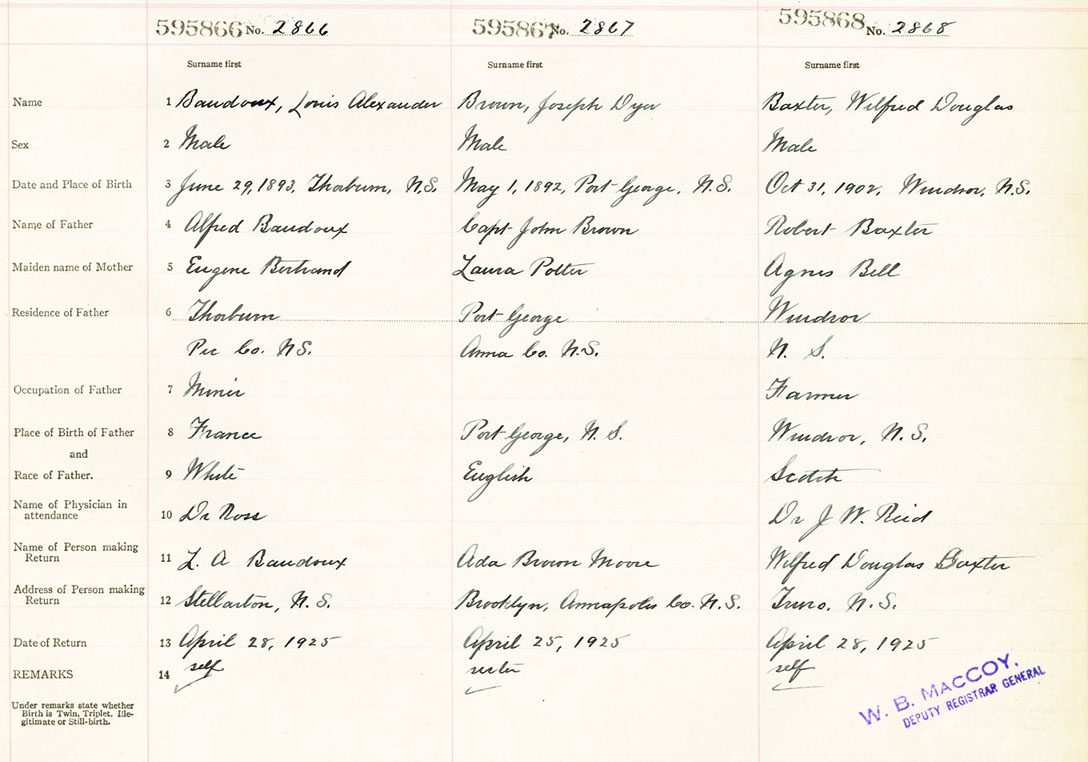 595866 No. 2866 595867 No. 2867 595868 No. 2868
Surname first Surname first Surname first
Name 1 Baudoux, Louis Alexander Brown, Joseph Dyer Baxter, Wilfred Douglas
Sex 2 Male Male Male
Date and Place of Birth 3 June 29, 1893, Thorburn, N.S. May 1, 1892, Port George, N.S. Oct 31, 1902, Windsor, N.S.
Name of Father 4 Alfred Baudoux Capt John Brown Robert Baxter
Maiden name of Mother 5 Eugene Bertrand Laura Potter Agnes Bell
Residence of Father 6 Thorburn Port George Windsor
Pic Co. N.S. Anna Co. N.S. N. S.
Occupation of Father 7 Miner Farmer
Place of Birth of Father 8 France Port George, N. S. Windsor, N.S.
and
Race of Father. 9 White English Scotch
Name of Physician in
attendance 10 Dr Ross Dr J. W. Reid
Name of Person making
Return 11 L. A Baudoux Ada Brown Moore Wilfred Douglas Baxter
Address of Person making
Return 12 Stellarton, N.S. Brooklyn, Annapolis Co. N.S. Truro, N.S.
Date of Return 13 April 28, 1925 April 25, 1925 April 28, 1925
REMARKS 14 self sister self
Under remarks state whether
Birth is Twin, Triplet, Ille-
gitimate or Still-birth.
W. B. MacCOY,
DEPUTY REGISTRAR GENERAL